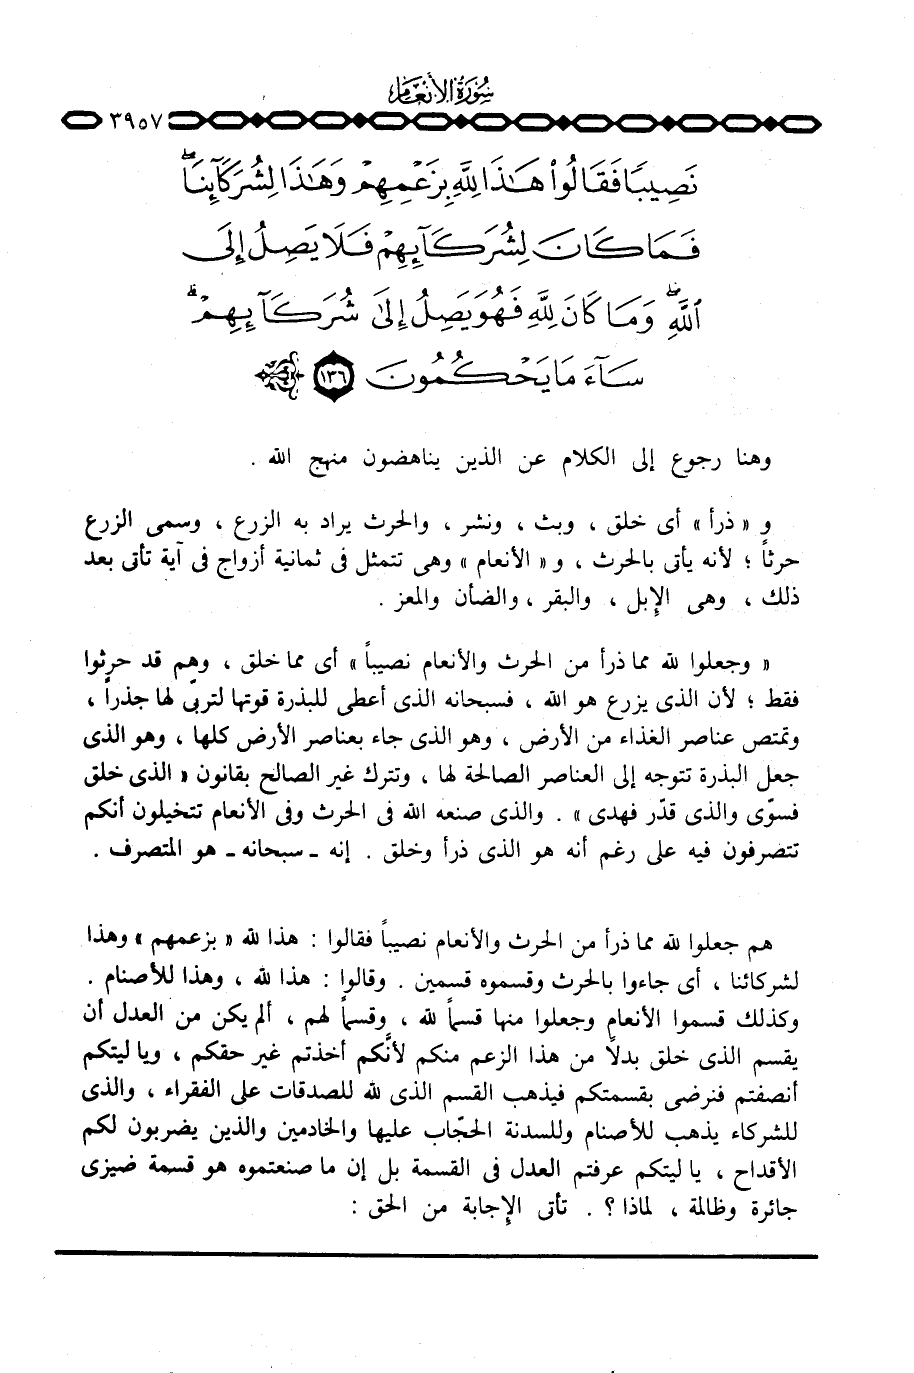 سُورَةُ الأَنْعَامِ
٣٩٥٧
نَصِيبًا فَقَالُوا۟ هَـٰذَا لِلَّهِ بِزَعْمِهِمْ وَهَـٰذَا لِشُرَكَآئِنَا ۖ
فَمَا كَانَ لِشُرَكَآئِهِمْ فَلَا يَصِلُ إِلَى
ٱللَّهِ ۖ وَمَا كَانَ لِلَّهِ فَهُوَ يَصِلُ إِلَىٰ شُرَكَآئِهِمْ ۗ
سَآءَ مَا يَحْكُمُونَ ١٣٦
وهنا رجوع إلى الكلام عن الذين يناهضون منهج الله .
و « ذرأ » أى خلق ، وبث ، ونشر ، والحرث يراد به الزرع ، وسمى الزرع
حرثاً ؛ لأنه يأتى بالحرث ، و « الأنعام » وهى تتمثل فى ثمانية أزواج فى آية تأتى بعد
ذلك ، وهى الإبل ، والبقر ، والضأن والمعز .
« وجعلوا لله مما ذرأ من الحرث والأنعام نصيباً » أى مما خلق ، وهم قد حرثوا
فقط ؛ لأن الذى يزرع هو الله ، فسبحانه الذى أعطى للبذرة قوتها لتربّى لها جذراً ،
وتمتص عناصر الغذاء من الأرض ، وهو الذى جاء بعناصر الأرض كلها ، وهو الذى
جعل البذرة تتوجه إلى العناصر الصالحة لها ، وتترك غير الصالح بقانون « الذى خلق
فسوّى والذى قدّر فهدى » . والذى صنعه الله فى الحرث وفى الأنعام تتخيلون أنكم
تتصرفون فيه على رغم أنه هو الذى ذرأ وخلق . إنه ـ سبحانه ـ هو المتصرف .
هم جعلوا لله مما ذرأ من الحرث والأنعام نصيباً فقالوا : هذا لله « بزعمهم » وهذا
لشركائنا ، أى جاءوا بالحرث وقسموه قسمين . وقالوا : هذا لله ، وهذا للأصنام .
وكذلك قسموا الأنعام وجعلوا منها قسماً لله ، وقسماً لهم ، ألم يكن من العدل أن
يقسم الذى خلق بدلاً من هذا الزعم منكم لأنَّكم أخذتم غير حقكم ، ويا ليتكم
أنصفتم فنرضى بقسمتكم فيذهب القسم الذى لله للصدقات على الفقراء ، والذى
للشركاء يذهب للأصنام وللسدنة الحجّاب عليها والخادمين والذين يضربون لكم
الأقداح ، يا ليتكم عرفتم العدل فى القسمة بل إن ما صنعتموه هو قسمة ضيزى
جائرة وظالمة ، لماذا ؟ . تأتى الإجابة من الحق :